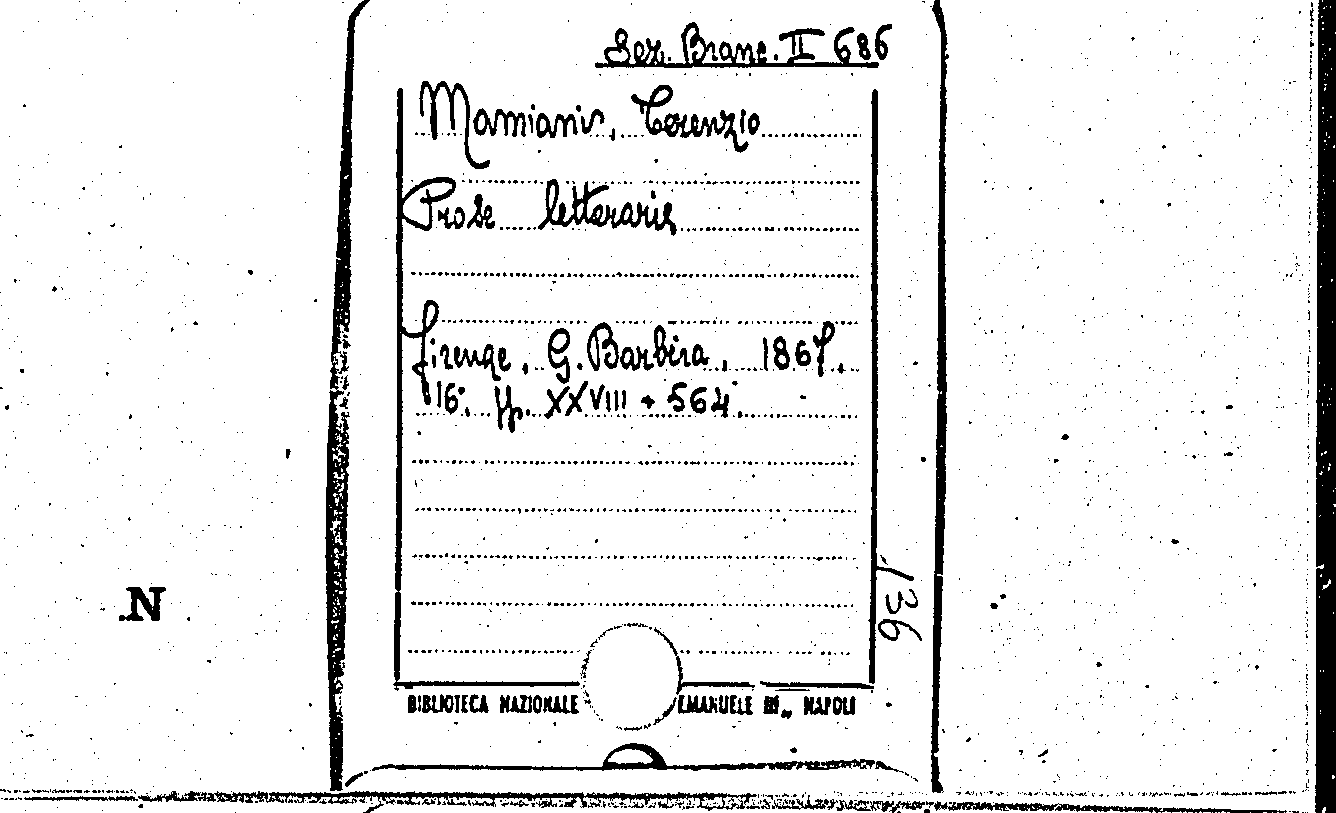 Sez. Branc. II 686
Mamiani, Terenzio
Prose letterarie
Firenze, G. Barbèra, 1867.
16°. pp. XXVIII + 564.
136
N
BIBLIOTECA NAZIONALE EMANUELE III„ NAPOLI